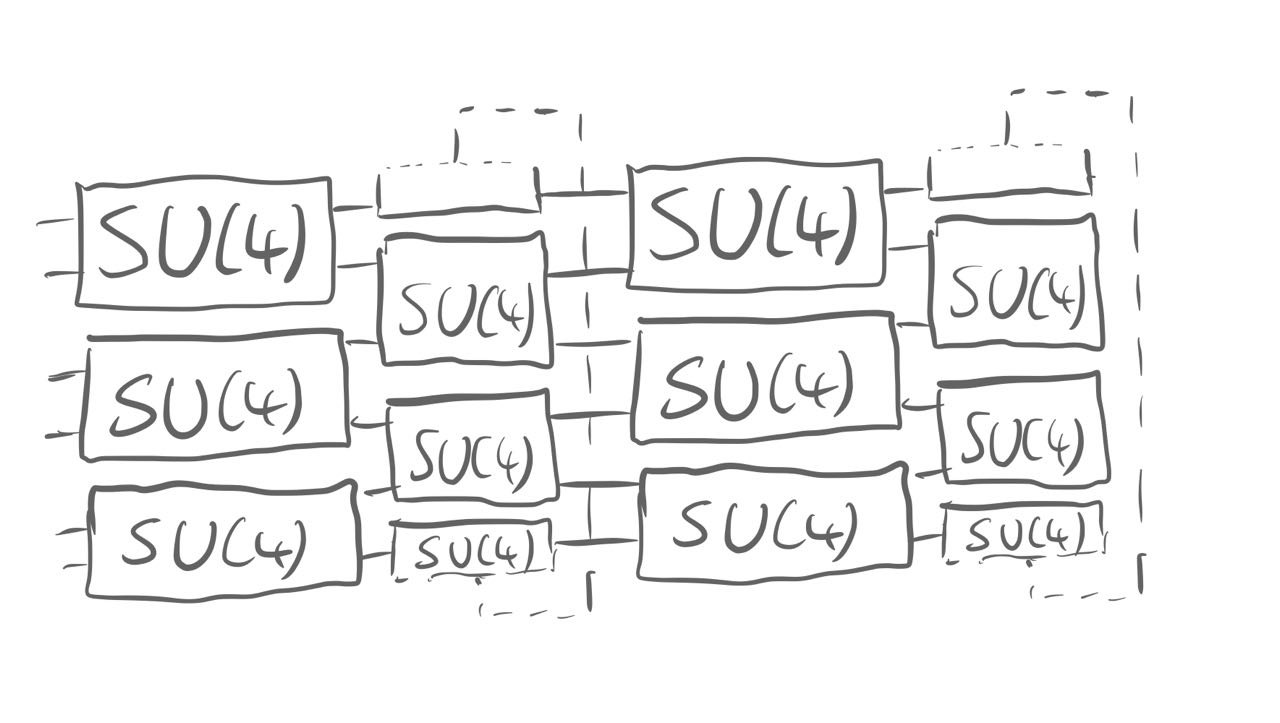 SU(4)
SU(4)
SU(4)
SU(4)
SU(4)
SU(4)
SU(4)
SU(4)
SU(4)
SU(4)
SU(4)
SU(4)